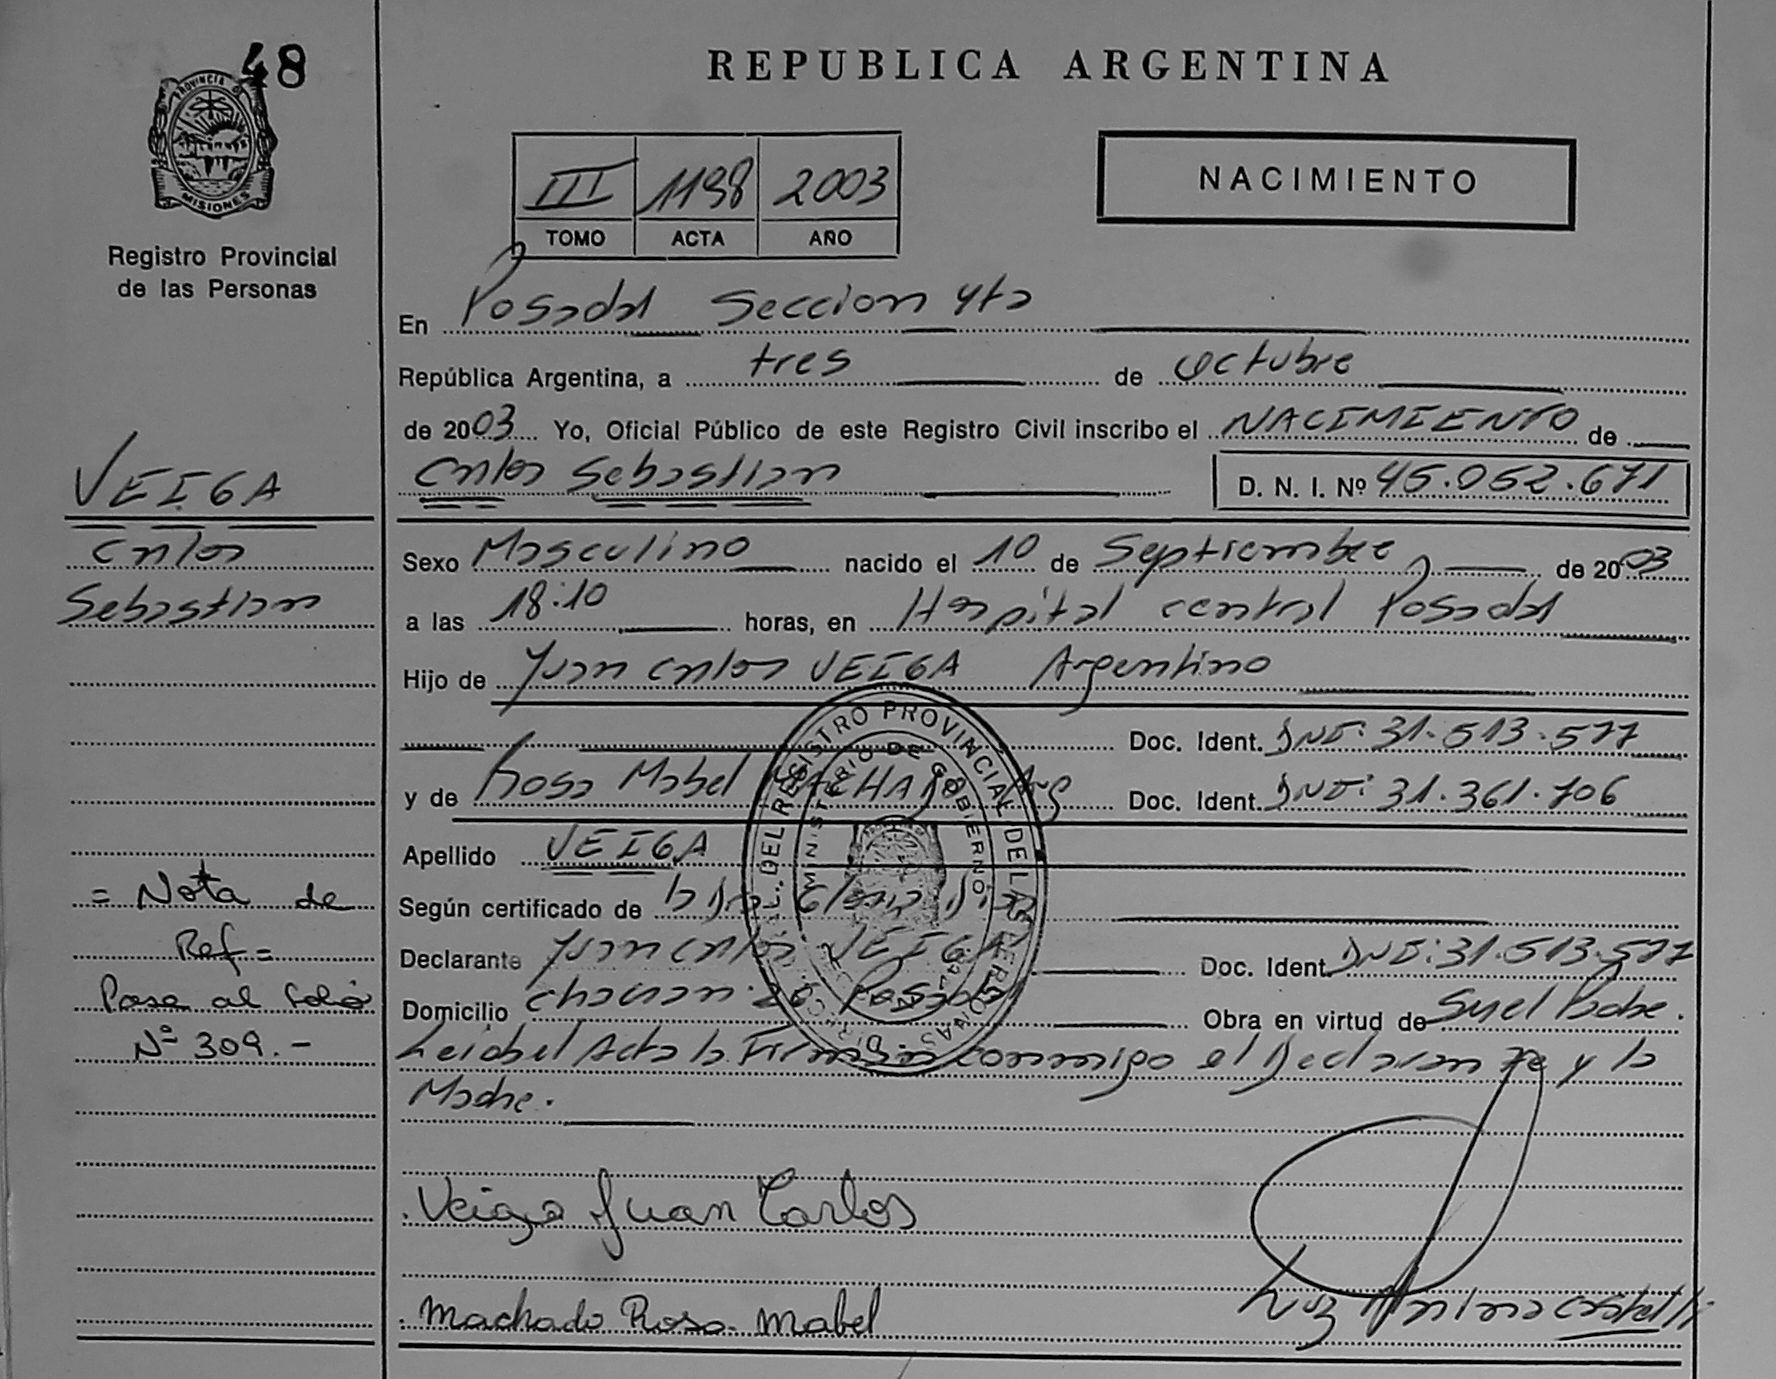 48
PROVINCIA DE
MISIONES
Registro Provincial
de las Personas
REPUBLICA ARGENTINA
III 1198 2003
TOMO ACTA AÑO
NACIMIENTO
En Posadas Seccion 4ta
República Argentina, a tres de octubre
de 2003 Yo, Oficial Público de este Registro Civil inscribo el NACIMIENTO de
Carlos Sebastian D. N. I. Nº 45.052.671
VEIGA
Carlos
Sebastian
Sexo Masculino nacido el 10 de Septiembre de 2003
a las 18:10 horas, en Hospital central Posadas
Hijo de Juan Carlos VEIGA Argentino
Doc. Ident. DNI: 31.513.577
y de Rosa Mabel MACHADO Arg Doc. Ident. DNI: 31.361.706
Apellido VEIGA
Según certificado de la Dra
Declarante Juan Carlos VEIGA Doc. Ident. DNI: 31.513.577
Domicilio Posadas Obra en virtud de
Leida el Acta la Firman conmigo el Declarante y la
Madre.
= Nota de
Ref =
Pasa al folio
Nº 309.-
REGISTRO PROVINCIAL DE LAS PERSONAS
MINISTERIO DE GOBIERNO
Veiga Juan Carlos
Machado Rosa Mabel
Luz